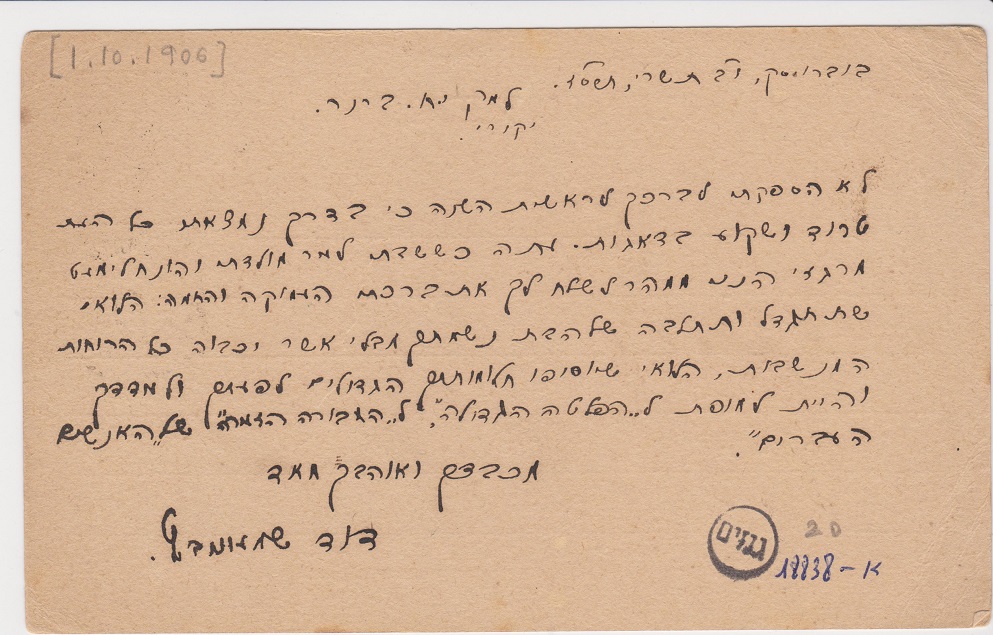 [1.10.1906]
בוברויסק, י"ב תשרי, תרס"ז.
למר י.ח. ברנר.
יקירי.
לא הספקתי לברכך לראשית השנה כי בדרך נמצאתי כל העת
טרוד ושקוע בדאגות. עתה כששבתי למר מולדתי והונח לי מעט
מרגזי הנני ממהר לשלח לך את ברכתי העמוקה והחמה: הלואי
שתתגדל ותתלבה שלהבת נשמתך מבלי אשר יכבוה כל הרוחות
המנשבות, הלואי שיוסיפו חלומותיך הגדולים לפעם ולמדדך
והיית למופת ל„הפליטה הגדולה", ל„הגבורה הזמרה" של „האנשים
העברים".
מכבדך ואוהבך מאד
דוד שמעונוביץ.
גנזים
20
18838-א